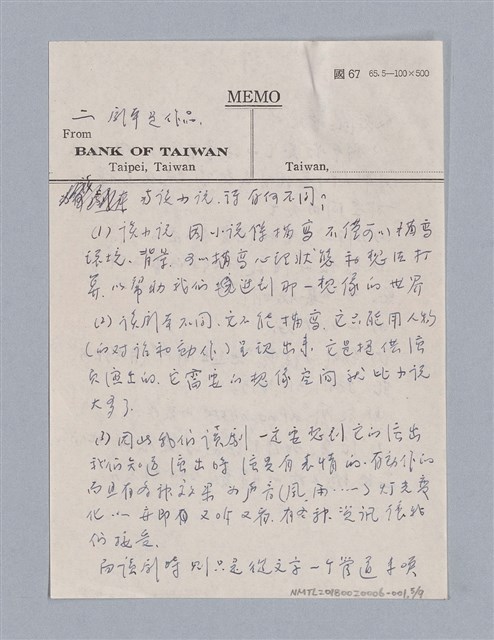 國 67 65.5—100×500
MEMO
二 劇本是作品.
From
BANK OF TAIWAN
Taipei, Taiwan
Taiwan,
读剧本 与读小说、诗有何不同?
(1) 读小说 因小说俫描寫 不僅可以描寫
環境、背景 可以描寫心理狀態和想法打
算,以帮助我们進到那一想像的世界
(2) 读剧本不同,它不能描寫,它只能用人物
(的对话和动作)呈現出来,它是提供演
员演出的,它需要的想像空间就比小说
大多了.
(3) 因此我们读劇一定要想到它的演出
我们知道演出時 演員有表情的,有动作的
而且有各种效果 如声音(風、雨……)灯光变
化…… 并即 又听又看,有各种资讯供我
们接受.
而读剧時 则只是從文字一个管道来喚
NMTL20180020006-001,5/9